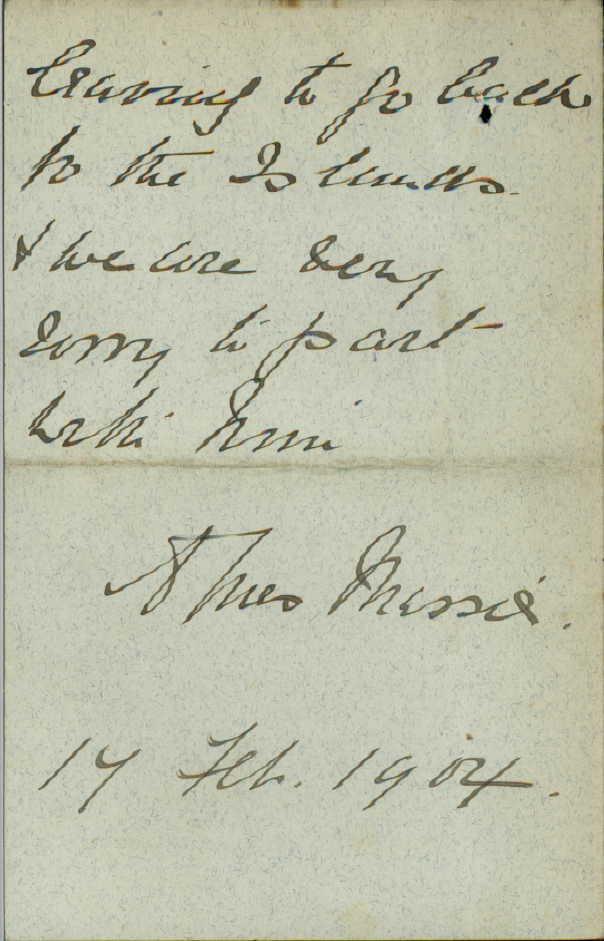 leaving to go back
to the Islands
& we are very
sorry to part
with him
Agnes Massie.
17 Feb. 1904.